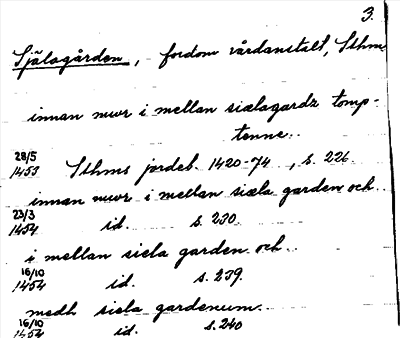 3.
Själagården, fordom vårdanstalt, Sthm
innan muur i mellan siælagardz tomp-
tenne..
28/5
1453 Sthms jordeb. 1420-74, s. 226.
innan muur i mellan siæla garden och..
23/3
1454 id. s. 230.
i mellan siela garden och..
16/10
1454 id. s. 239.
medh siela gardenum..
16/10
1454 id. s. 240